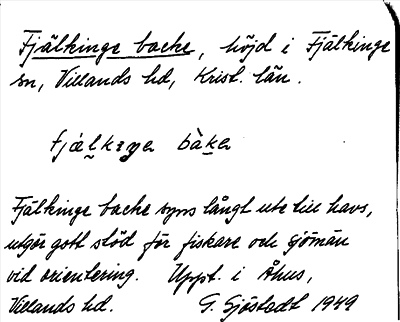 Fjälkinge backe, höjd i Fjälkinge
sn, Villands hd, Krist. län.
Fjälkinge backe syns långt ute till havs,
utgör gott stöd för fiskare och sjömän
vid orientering. Uppt. i Åhus,
Villands hd. G. Sjöstedt 1949